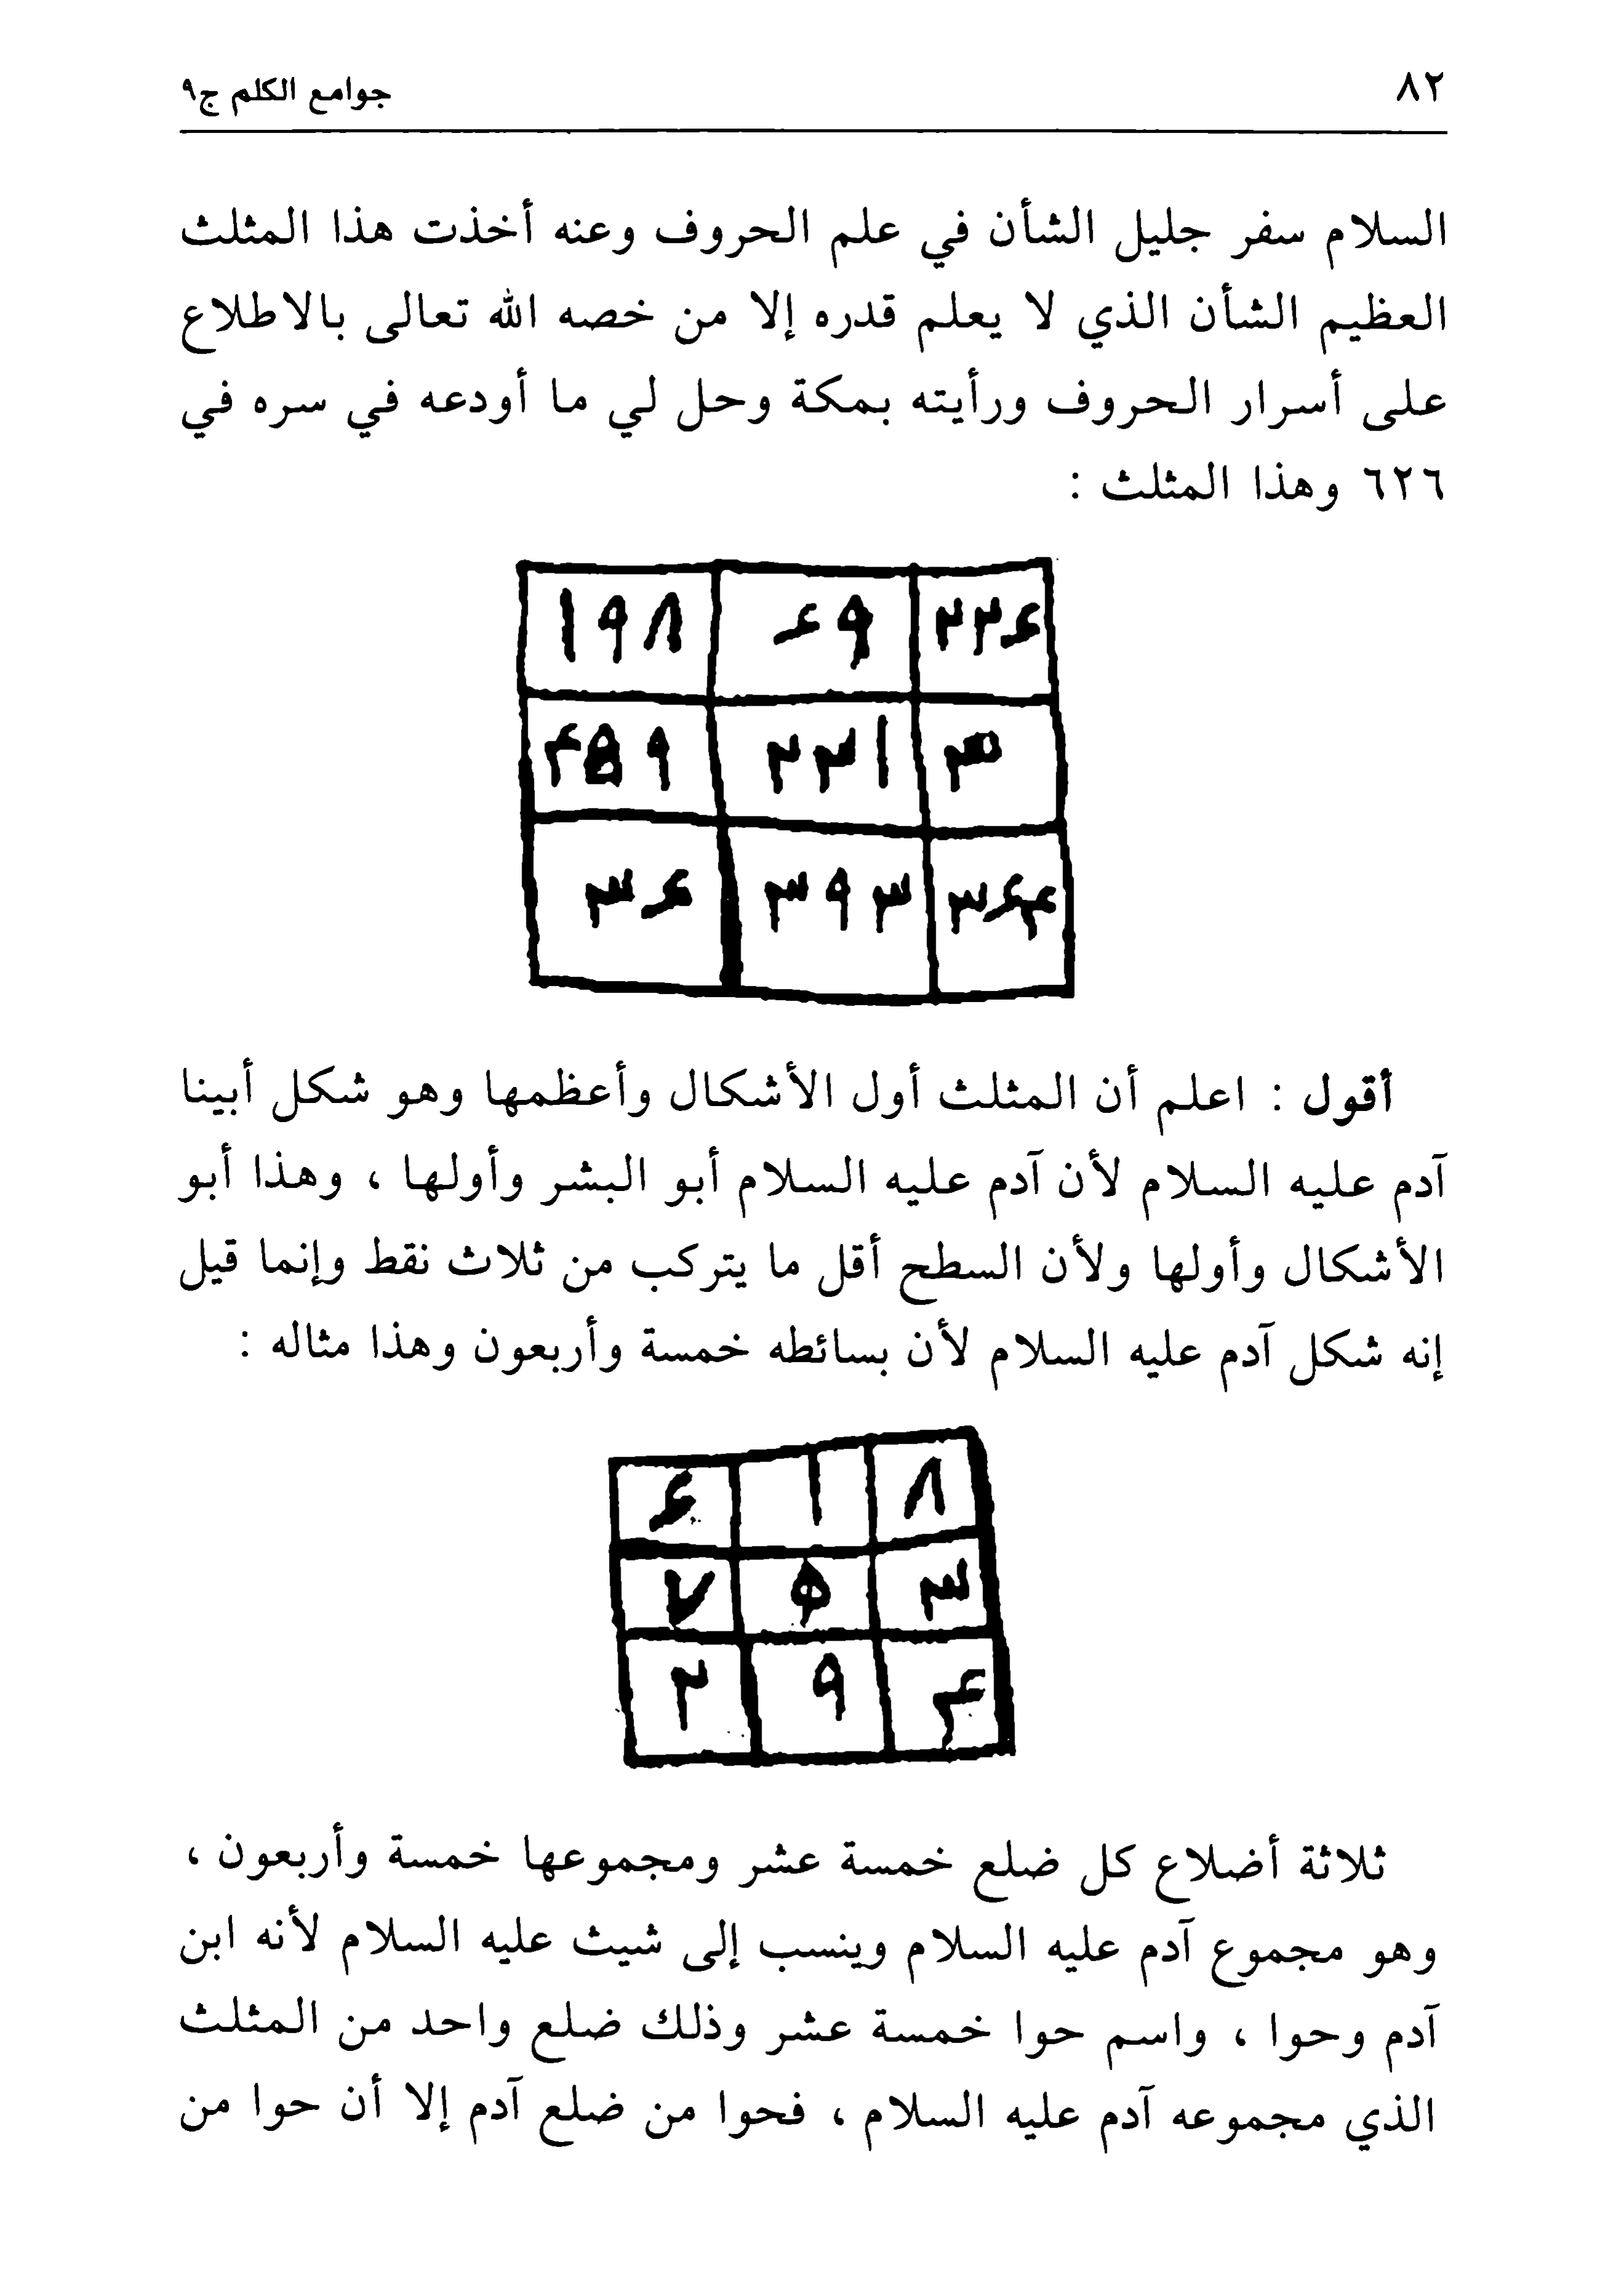 ٨٢
جوامع الكلم ج٩
السلام سفر جليل الشأن في علم الحروف وعنه أخذت هذا المثلث
العظيم الشأن الذي لا يعلم قدره إلا من خصه الله تعالى بالاطلاع
على أسرار الحروف ورأيته بمكة وحل لي ما أودعه في سره في
٦٢٦ وهذا المثلث :
١٩٨ ٦٩ ٢٢٦
٤٥٩ ٢٣١
٣٦ ٣٩٣ ٣٦٤
أقول : اعلم أن المثلث أول الأشكال وأعظمها وهو شكل أبينا
آدم عليه السلام لأن آدم عليه السلام أبو البشر وأولها ، وهذا أبو
الأشكال وأولها ولأن السطح أقل ما يتركب من ثلاث نقط وإنما قيل
إنه شكل آدم عليه السلام لأن بسائطه خمسة وأربعون وهذا مثاله :
٦ ١ ٨
٧ ٥ ٣
٢ ٩ ٤
ثلاثة أضلاع كل ضلع خمسة عشر ومجموعها خمسة وأربعون ،
وهو مجموع آدم عليه السلام وينسب إلى شيث عليه السلام لأنه ابن
آدم وحوا ، واسم حوا خمسة عشر وذلك ضلع واحد من المثلث
الذي مجموعه آدم عليه السلام ، فحوا من ضلع آدم إلا أن حوا من